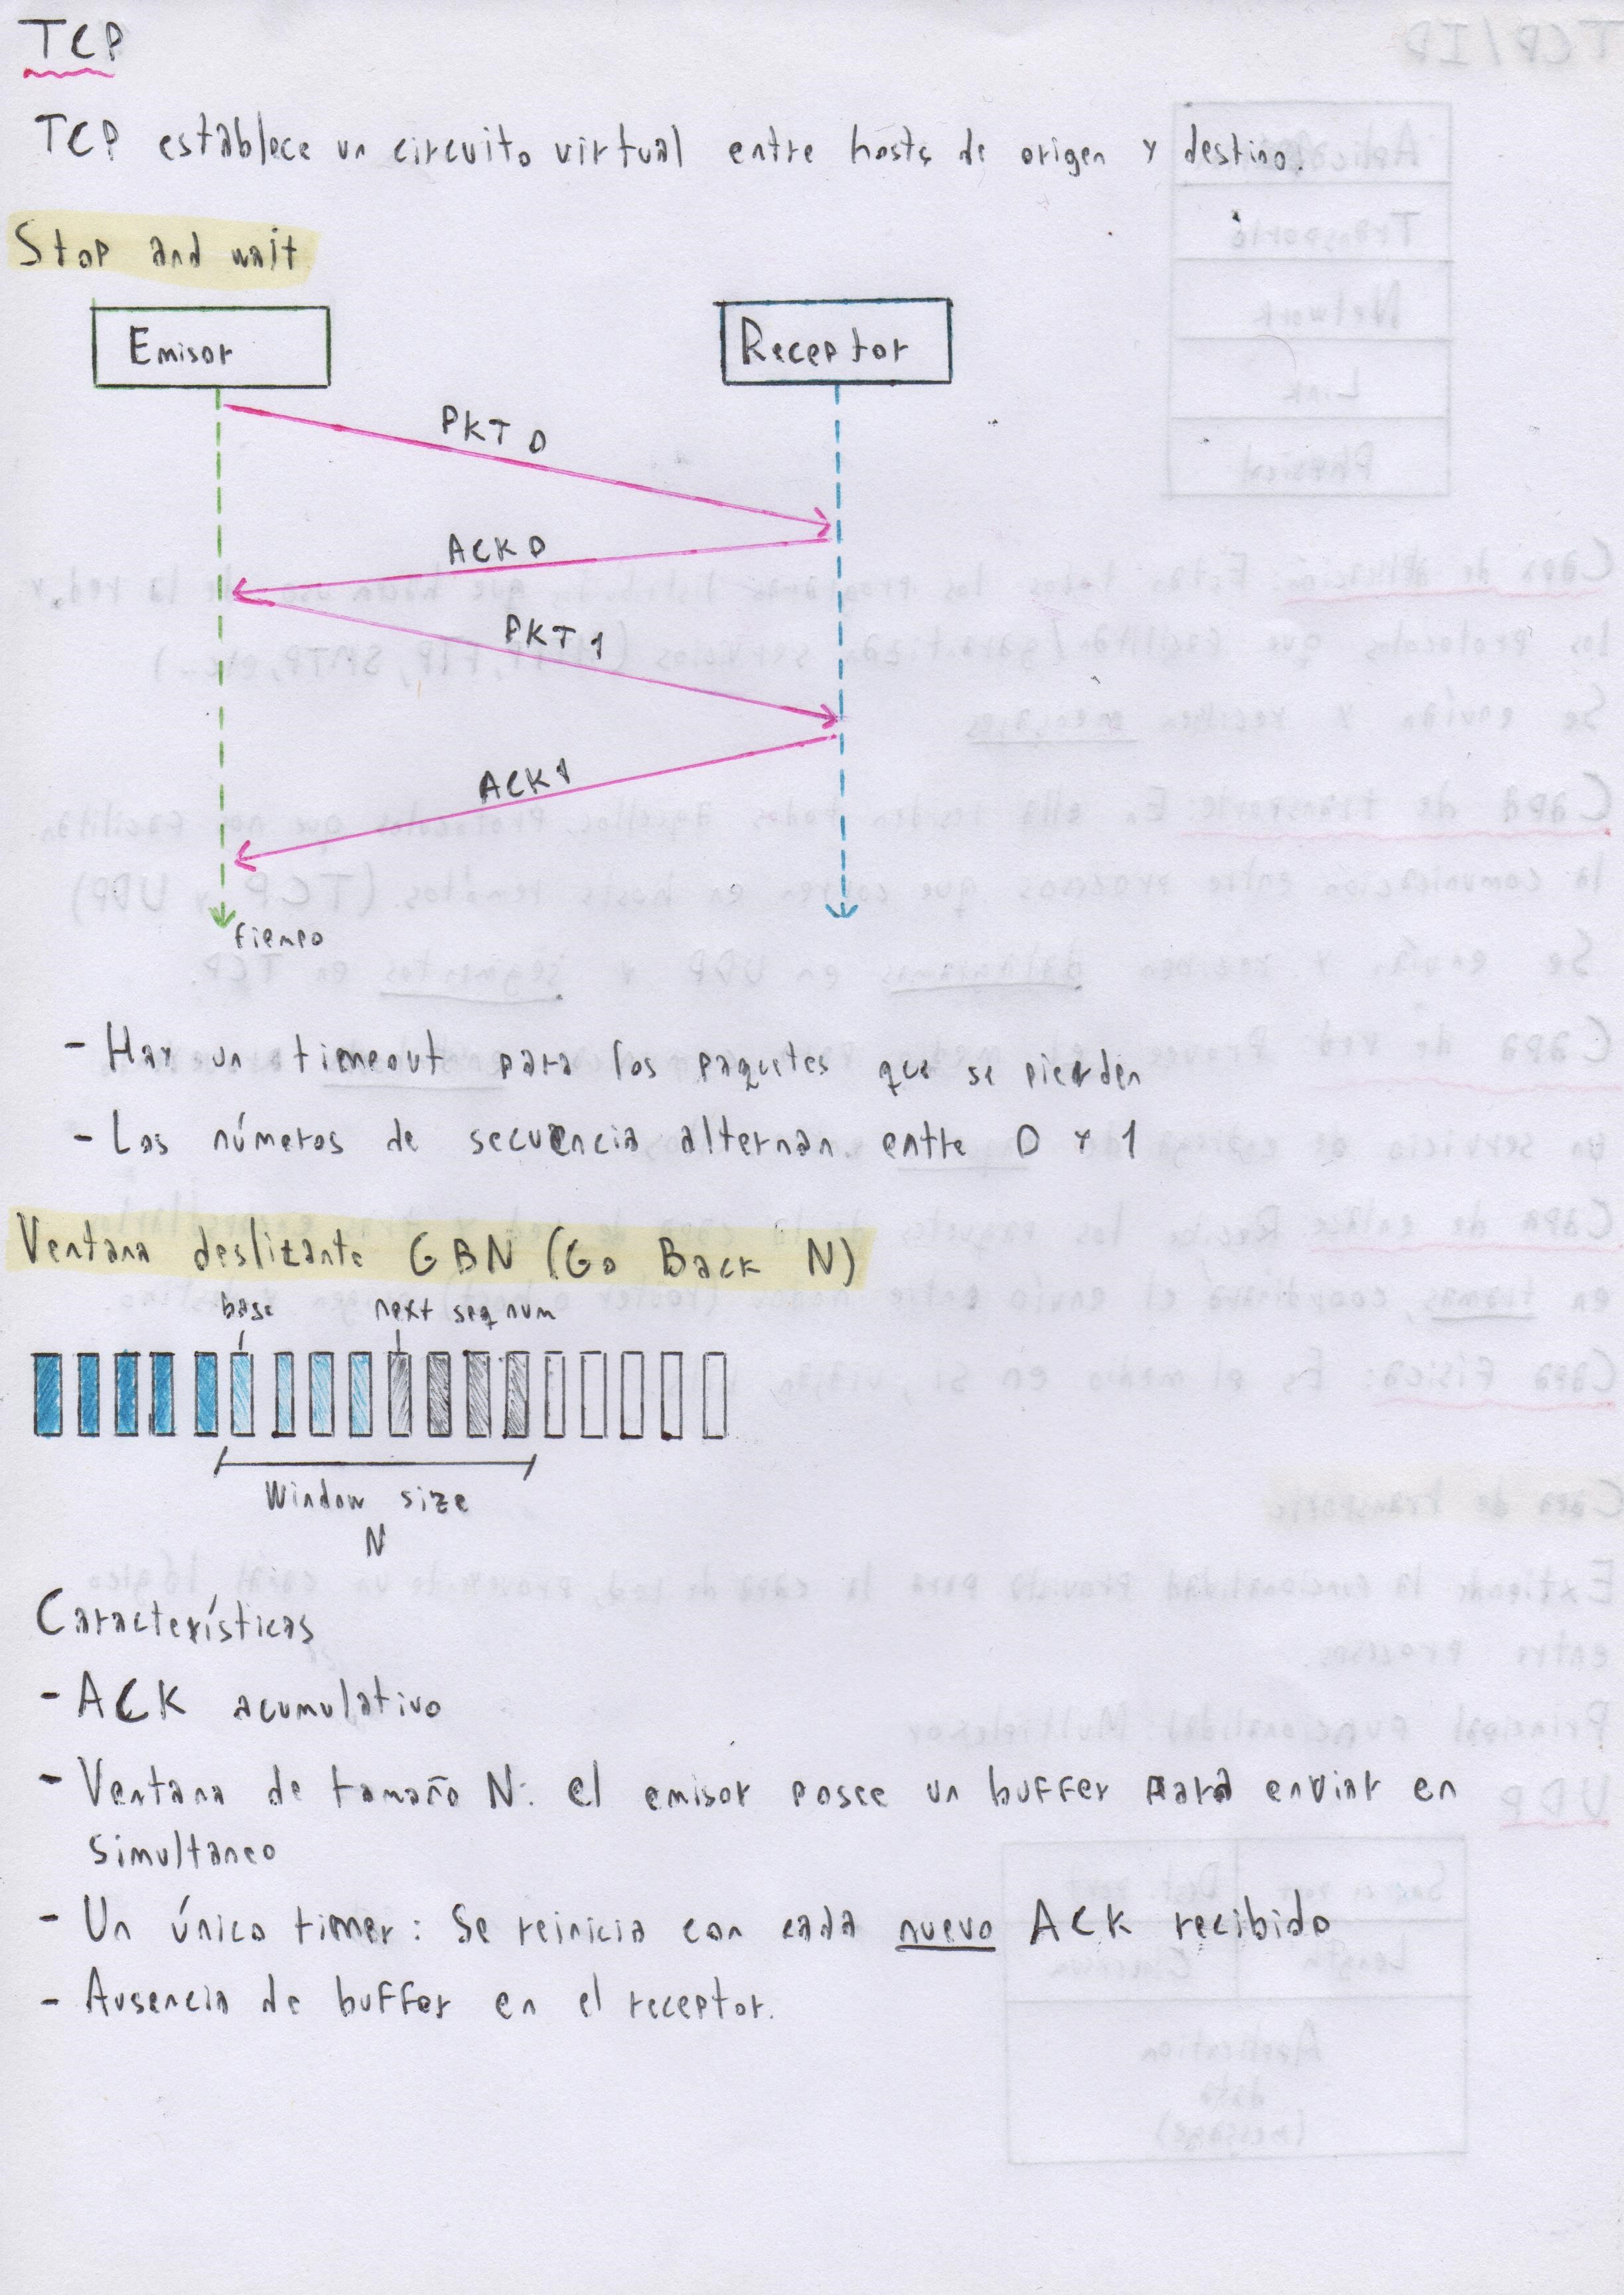 TCP
TCP establece un circuito virtual entre hosts de origen y destino.
Stop and wait
Emisor
Receptor
PKT 0
ACK 0
PKT 1
ACK 1
tiempo
- Hay un timeout para los paquetes que se pierden
- Los números de secuencia alternan entre 0 y 1
Ventana deslizante GBN (Go Back N)
base
next seq num
Window size
N
Características
- ACK acumulativo
- Ventana de tamaño N: el emisor posee un buffer para enviar en
simultaneo
- Un único timer: Se reinicia con cada nuevo ACK recibido
- Ausencia de buffer en el receptor.